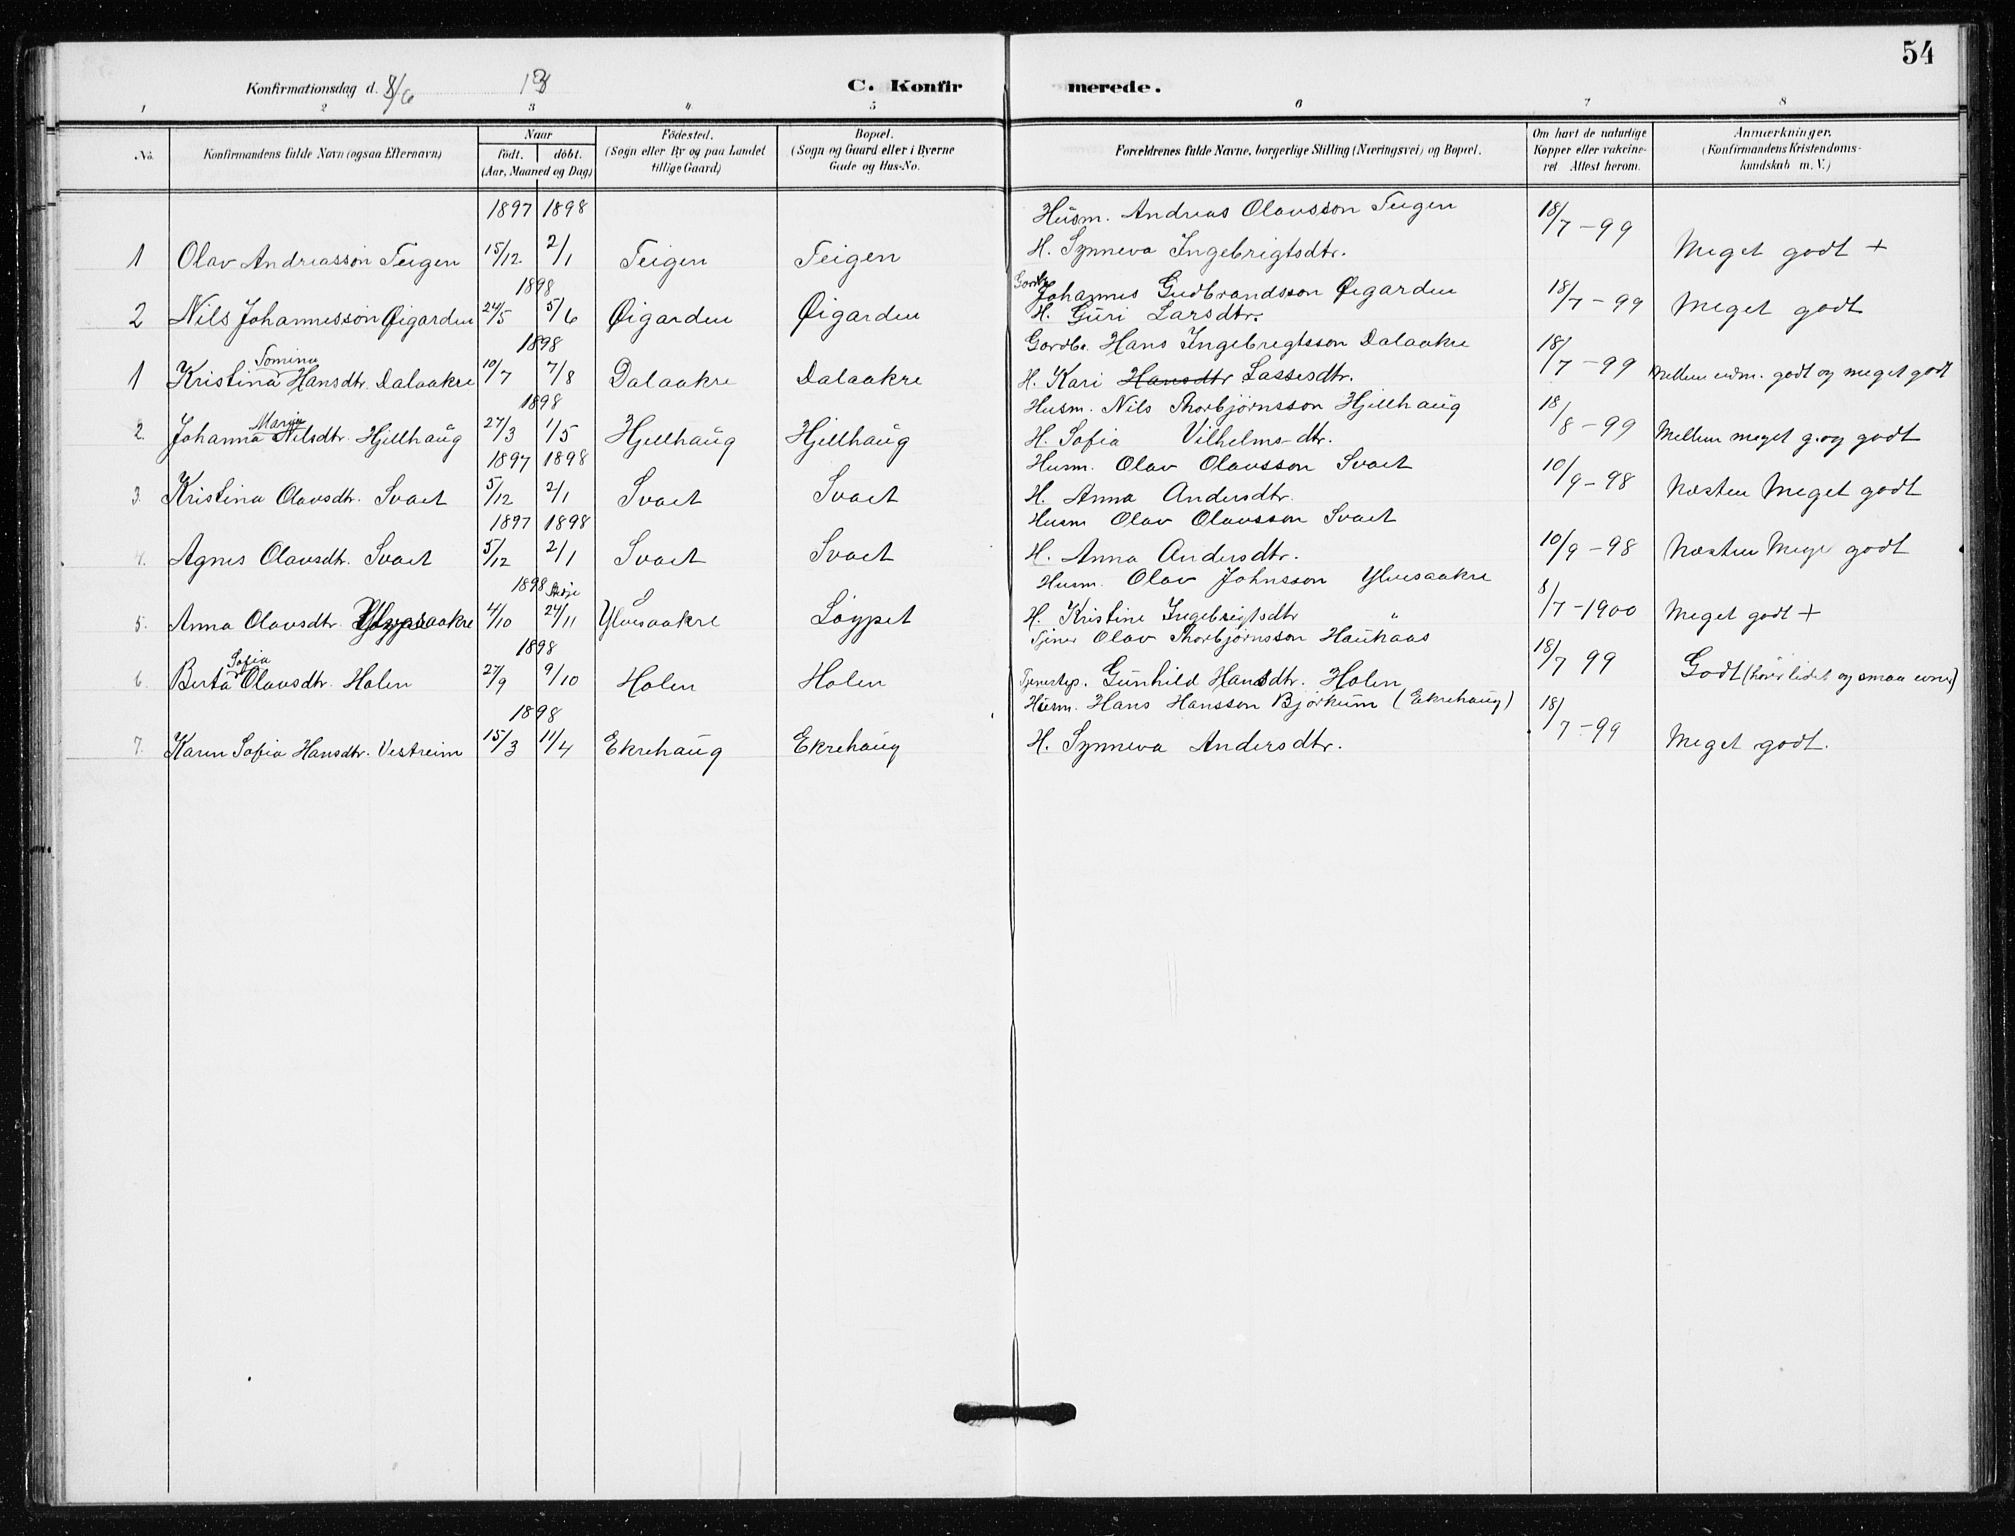 54
Konfirmationsdag d. 8/6 13
C. Konfirmerede.
1 2 3 " 5 6 7 8
No. Konfirmandens fulde Navn (ogsaa Efternavn) Naar födt. döbt. (Aar, Maaned og Dag) Födested. (Sogn eller By og paa Landet tillige Gaard) Bopæl. (Sogn og Gaard eller i Byerne Gade og Hus-No. Forældrenes fulde Navne, borgerlige Stilling (Næringsvei) og Bopæl. Om havt de naturlige Kopper eller vakcineret Attest herom. Anmærkninger. (Konfirmandens Kristendomskundskab m. V.)
1897 1898 Husm. Andreas Olavsson Teigen 18/7-99
1 Olav Andreasson Teigen 15/12 2/1 Teigen Teigen H. Synneva Ingebrigtsdtr. Meget godt +
1898 Gardbr. Johannes Gudbrandsson Øigarden 18/7-99
2 Nils Johannesson Øigarden 24/5 5/6 Øigarden Øigarden H. Guri Larsdtr. Meget godt
1898 Gardbr. Hans Ingebregtsson Dalaakre 18/7-99
Tomina
1 Kristina Hansdtr. Dalaakre 10/7 7/8 Dalaakre Dalaakre H. Kari Hansdtr Lassesdtr. Mellem udm. godt og meget godt
1898 Husm. Nils Thorbjörnsson Hjellhaug 18/8-99
Maria
2. Johanna Nilsdtr. Hjellhaug 27/3 1/5 Hjellhaug Hjellhaug H. Sofia Vilhelms-dtr. Mellem meget g. og godt
1897 1898 Husm. Olav Olavsson Svaet 10/9-98
3. Kristina Olavsdtr. Svaet 5/12 2/1 Svaet Svaet H. Anna Andersdtr. Næsten Meget godt
1897 1898 Husm Olav Olavsson Svaet
4. Agnes Olavsdtr. Svaet 5/12 2/1 Svaet Svaet H. Anna Andersdtr. 10/9-98 Næsten Meget godt
1898 Husm. Olav Johnsson Ylvesaakre
5. Anna Olavsdtr. Ylvesaakre 4/10 24/11 Ylvesaakre Løypet H. Kristine Ingebrigtsdtr " 8/7-1900 Meget godt +
1898 Tjener Olav Thorbjørnsson Haukaas 18/7 99
Sofia
6. Berta Olavsdtr. Holen 27/9 9/10 Holen Holen Tjenestep. Gunhild Hansdtr. Holen Godt (hører lidet og smaa evner)
1898 Husm. Hans Hansson Bjørkum (Ekrehaug) 18/7-99
7. Karen Sofia Hansdtr. Vestreim 15/3 11/4 Ekrehaug Ekrehaug H. Synneva Andersdtr. Meget godt.